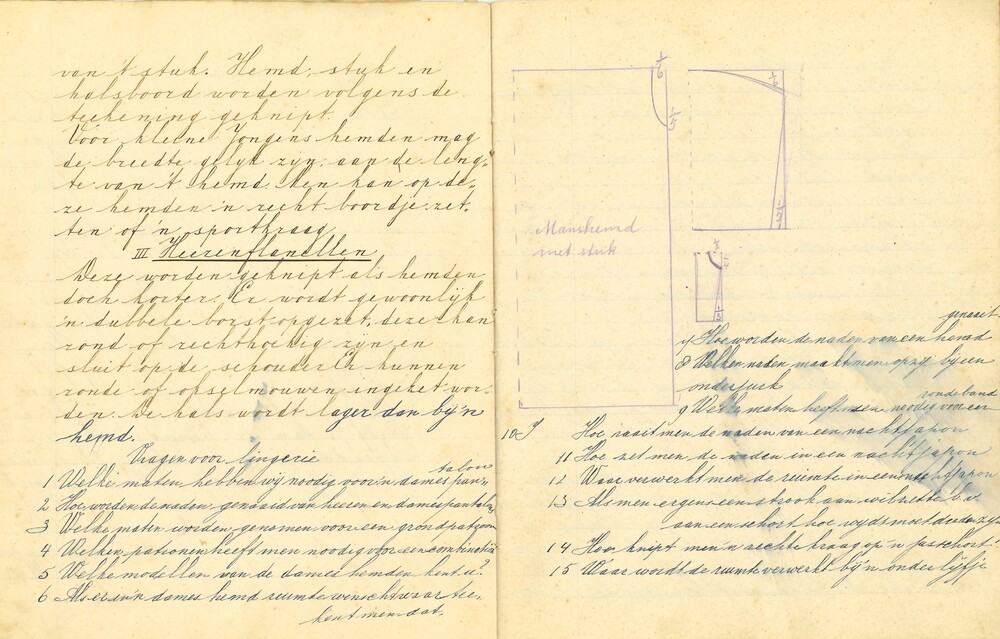 van 't stuk. Hemd, stuk en
halsboord worden volgens de
teekening geknipt.
Voor kleine Jongens hemden mag
de breedte gelyk zyn aan de leng-
te van 't hemd. Men kan op de-
ze hemden 'n recht boordje zet-
ten of 'n sportkraag
III Heerenflanellen
Deze worden geknipt als hemden
doch korter. Er wordt gewoonlyk
'n dubbele borst opgezet, deze kan
rond of rechthoekig zyn en
sluit op de schouder Er kunnen
ronde of opselmouwen ingezet wor-
den. De hals wordt lager dan by 'n
hemd.
Vragen voor lingerie
1 Welke maten hebben wij noodig voor 'n dames pan-
talon
2 Hoe worden de naden genaaid van heeren en damespantalon
3 Welke maten worden genomen voor een grondpatroon
4 Welken patronen heeft men noodig voor een combinatie
5 Welke modellen van de dames hemden kent u?
6 Als er in 'n dames hemd ruimte wenscht waar tee-
kent men dat.
1/6
1/5
Manshemd
met stuk
1/6
1/2
1/5
7 Hoe worden de naden van een hemd
genaait
8 Welken naden maakt men opzy bij een
onderjurk
9 Welke maten heeft men noodig voor een
ronde band
10 Hoe naait men de naden van een nachtjapon
11 Hoe zet men de naden in een nachtjapon
12 Waar verwerkt men de ruimte in een nachtjapon
13 Als men ergens een strook aan wil zetten b.v.
aan een schort hoe wyd moet deze zyn
14 Hoe knipt men 'n rechte kraag op 'n jasschort?
15 Waar wordt de ruimte verwerkt bij 'n onderlyfje